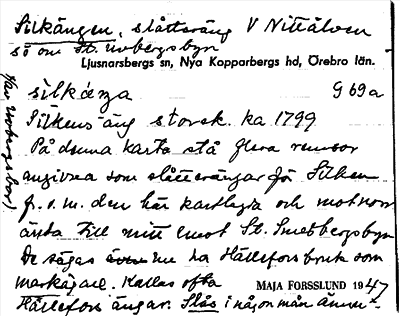 Silkängen, slåtteräng V Nittälven
sö om St. Mobergsbyn
Ljusnarsbergs sn, Nya Kopparbergs hd, Örebro län.
silkæŋa G 69a
Silkens äng storsk. ka 1799
På denna karta stå flera remsor
angivna som slåtterängar för Silken
fr. o. m. den här kartlagda och mot norr
ända till mitt emot St. Smedbergsbyn
De sägas även nu ha Hällefors bruk som
markägare. Kallas ofta
MAJA FORSSLUND 1947
Hällefors ängar. Slås i någon mån ännu.